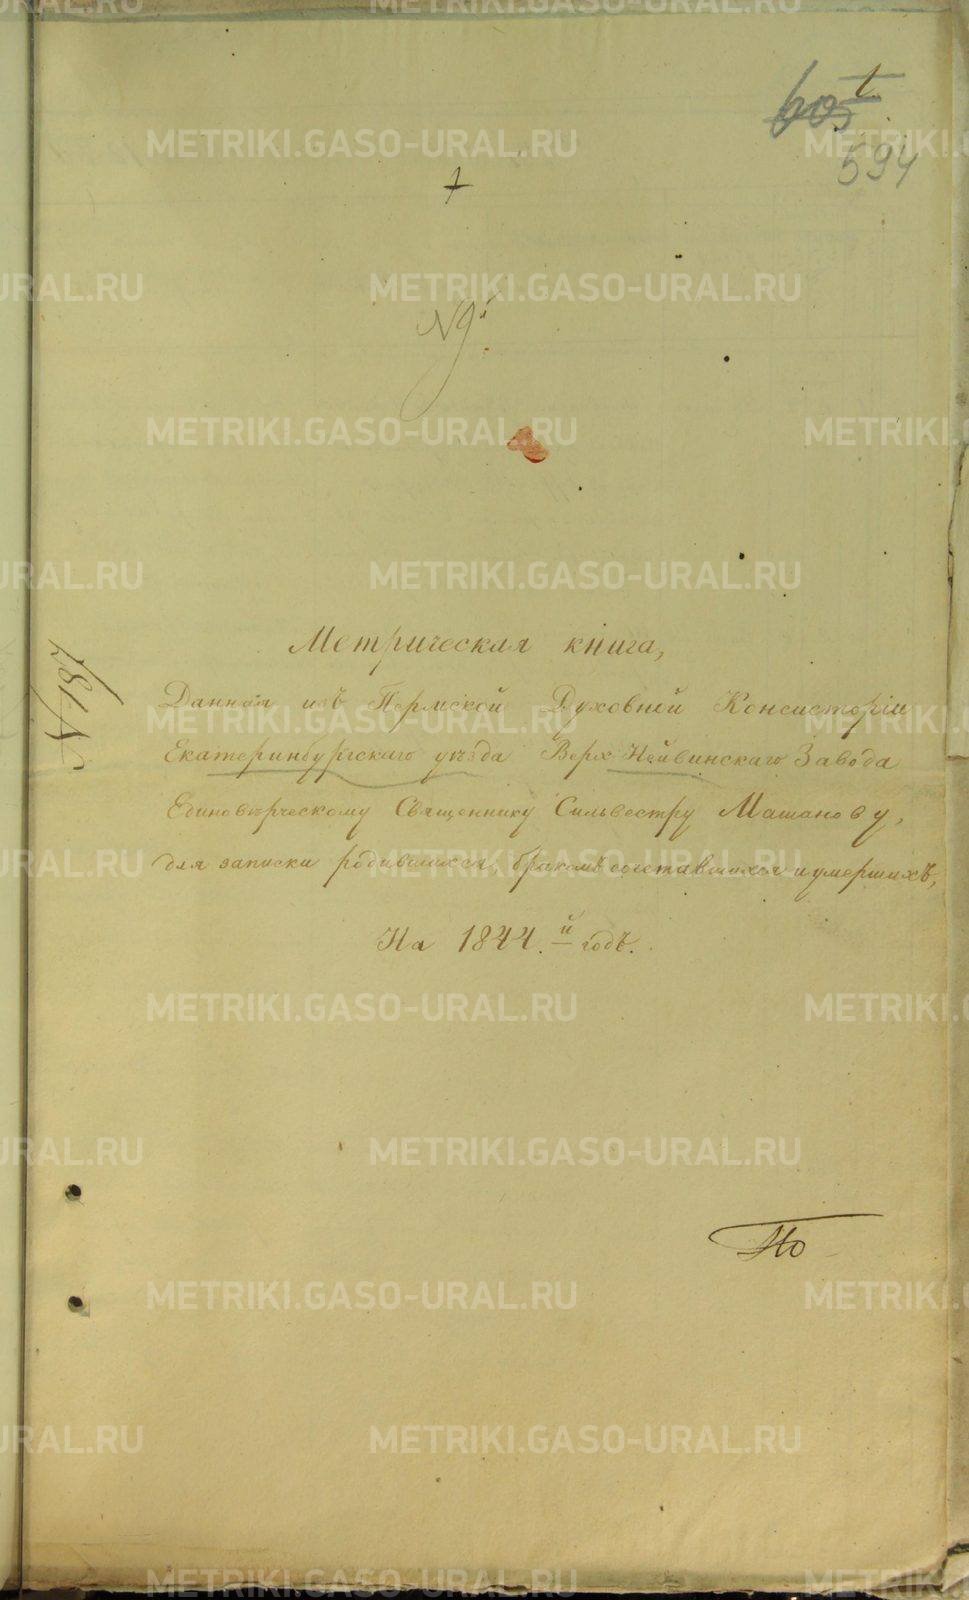 1
605
594
1
N 9й
Метрическая книга,
Данная изъ Пермской Духовной Консисторіи
Екатеринбургскаго уѣзда Верх Нейвинскаго Завода
Единовѣрческому Священнику Сильвестру Машанову,
для записки родившихся, бракомъ сочетавшихся и умершихъ,
На 1844.й годъ.
METRIKI.GASO-URAL.RU